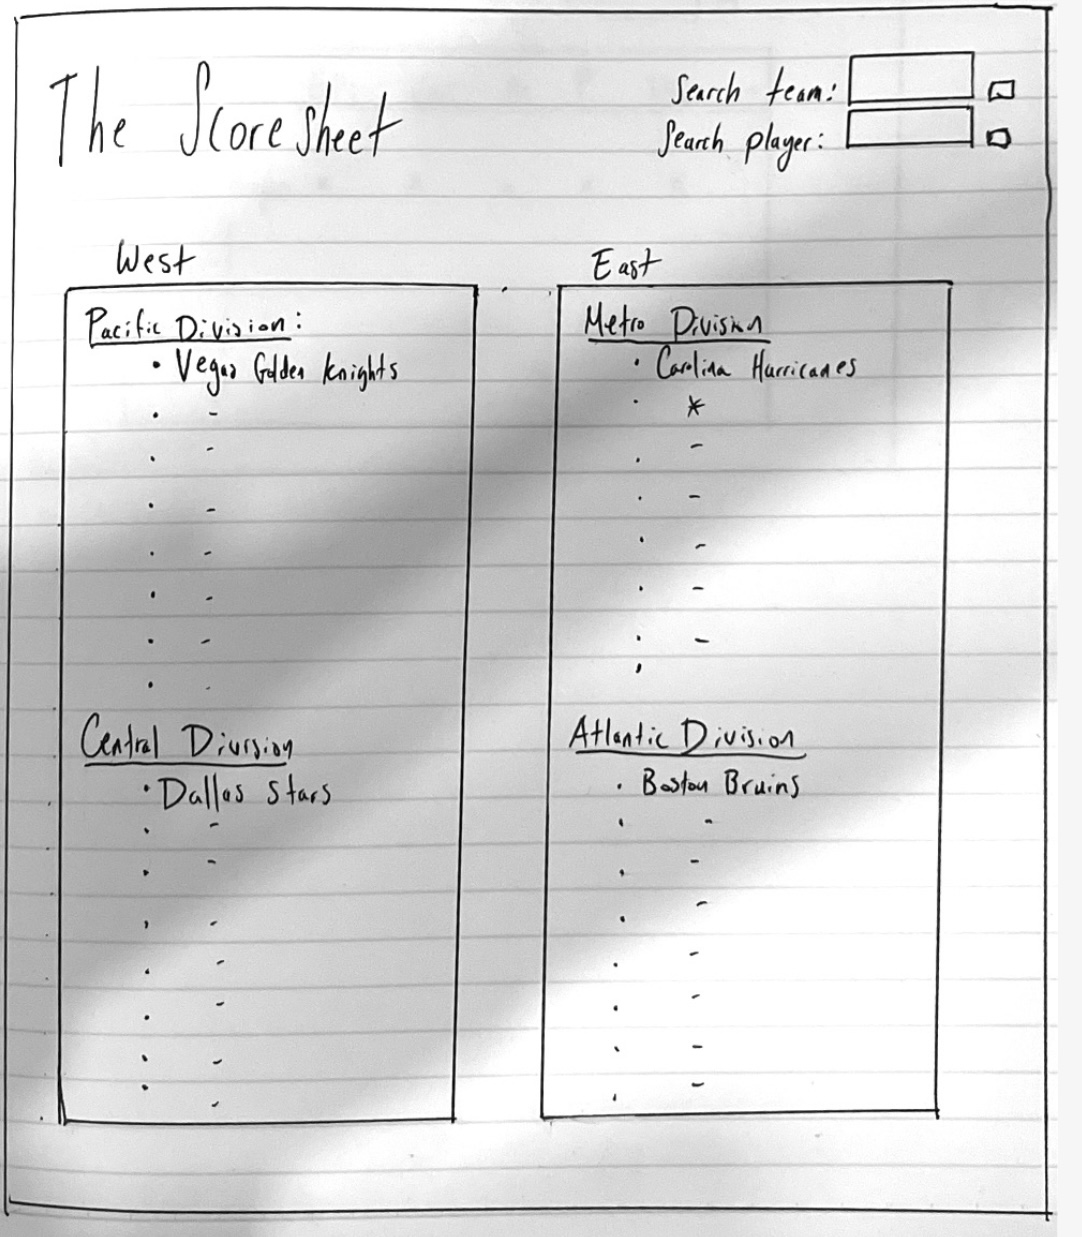 The Scoresheet
Search team:
Search player:
West
Pacific Division:
• Vegas Golden Knights
• -
• -
• -
• -
• -
• -
• -
Central Division
• Dallas Stars
• -
• -
• -
• -
• -
• -
• -
East
Metro Division
• Carolina Hurricanes
• *
• -
• -
• -
• -
• -
•
Atlantic Division
• Boston Bruins
• -
• -
• -
• -
• -
• -
• -